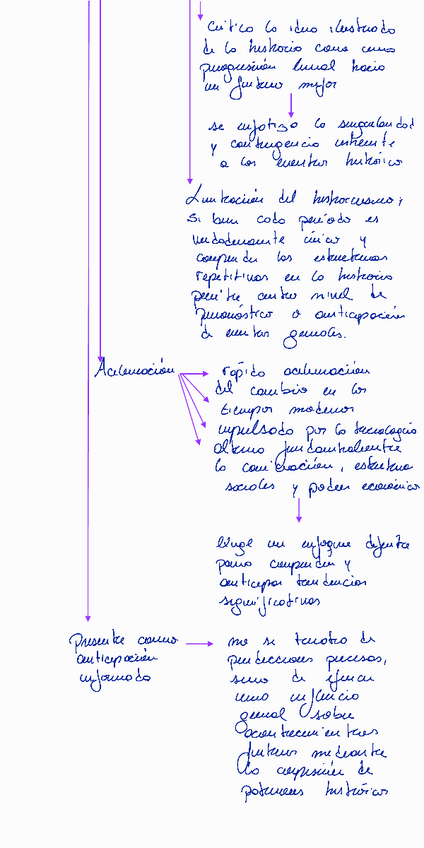 Critica la idea ilustrada
de la historia como una
progresión lineal hacia
un futuro mejor
se enfatiza la singularidad
y contingencia inherente
a los eventos históricos
Limitación del historicismo:
si bien cada periodo es
verdaderamente único y
comprender las estructuras
repetitivas en la historia
permite cierto nivel de
pronóstico o anticipación
de eventos generales.
Aceleración
rápida aceleración
del cambio en los
tiempos modernos
impulsado por la tecnología
altera fundamentalmente
la comunicación, estructura
sociales y poder económico
Exige un enfoque diferente
para comprender y
anticipar tendencias
significativas
Presente como
anticipación
informada
no se trata de
predicciones precisas,
sino de ejercer
una influencia
general sobre
acontecimientos
futuros mediante
la comprensión de
patrones históricos